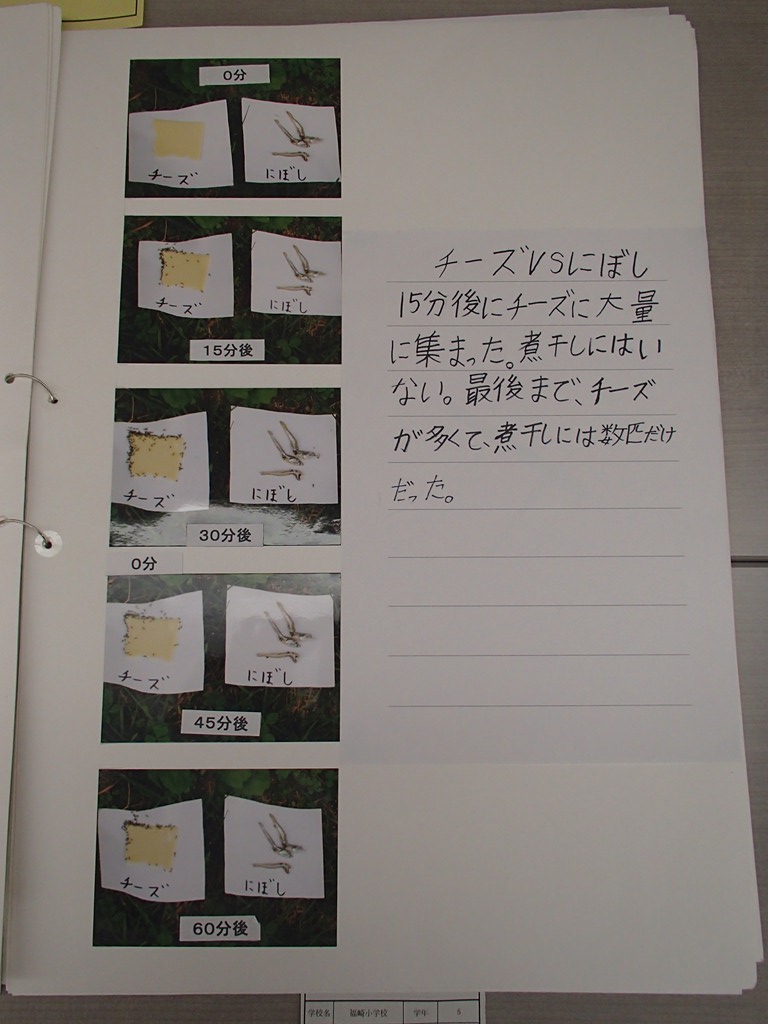 0分
チーズ
にぼし
チーズ
にぼし
15分後
チーズ
にぼし
30分後
0分
チーズ
にぼし
45分後
チーズ
にぼし
60分後
チーズVSにぼし
15分後にチーズに大量
に集まった。煮干しにはい
ない。最後まで、チーズ
が多くて、煮干しには数匹だけ
だった。
学校名 福崎小学校 学年 5